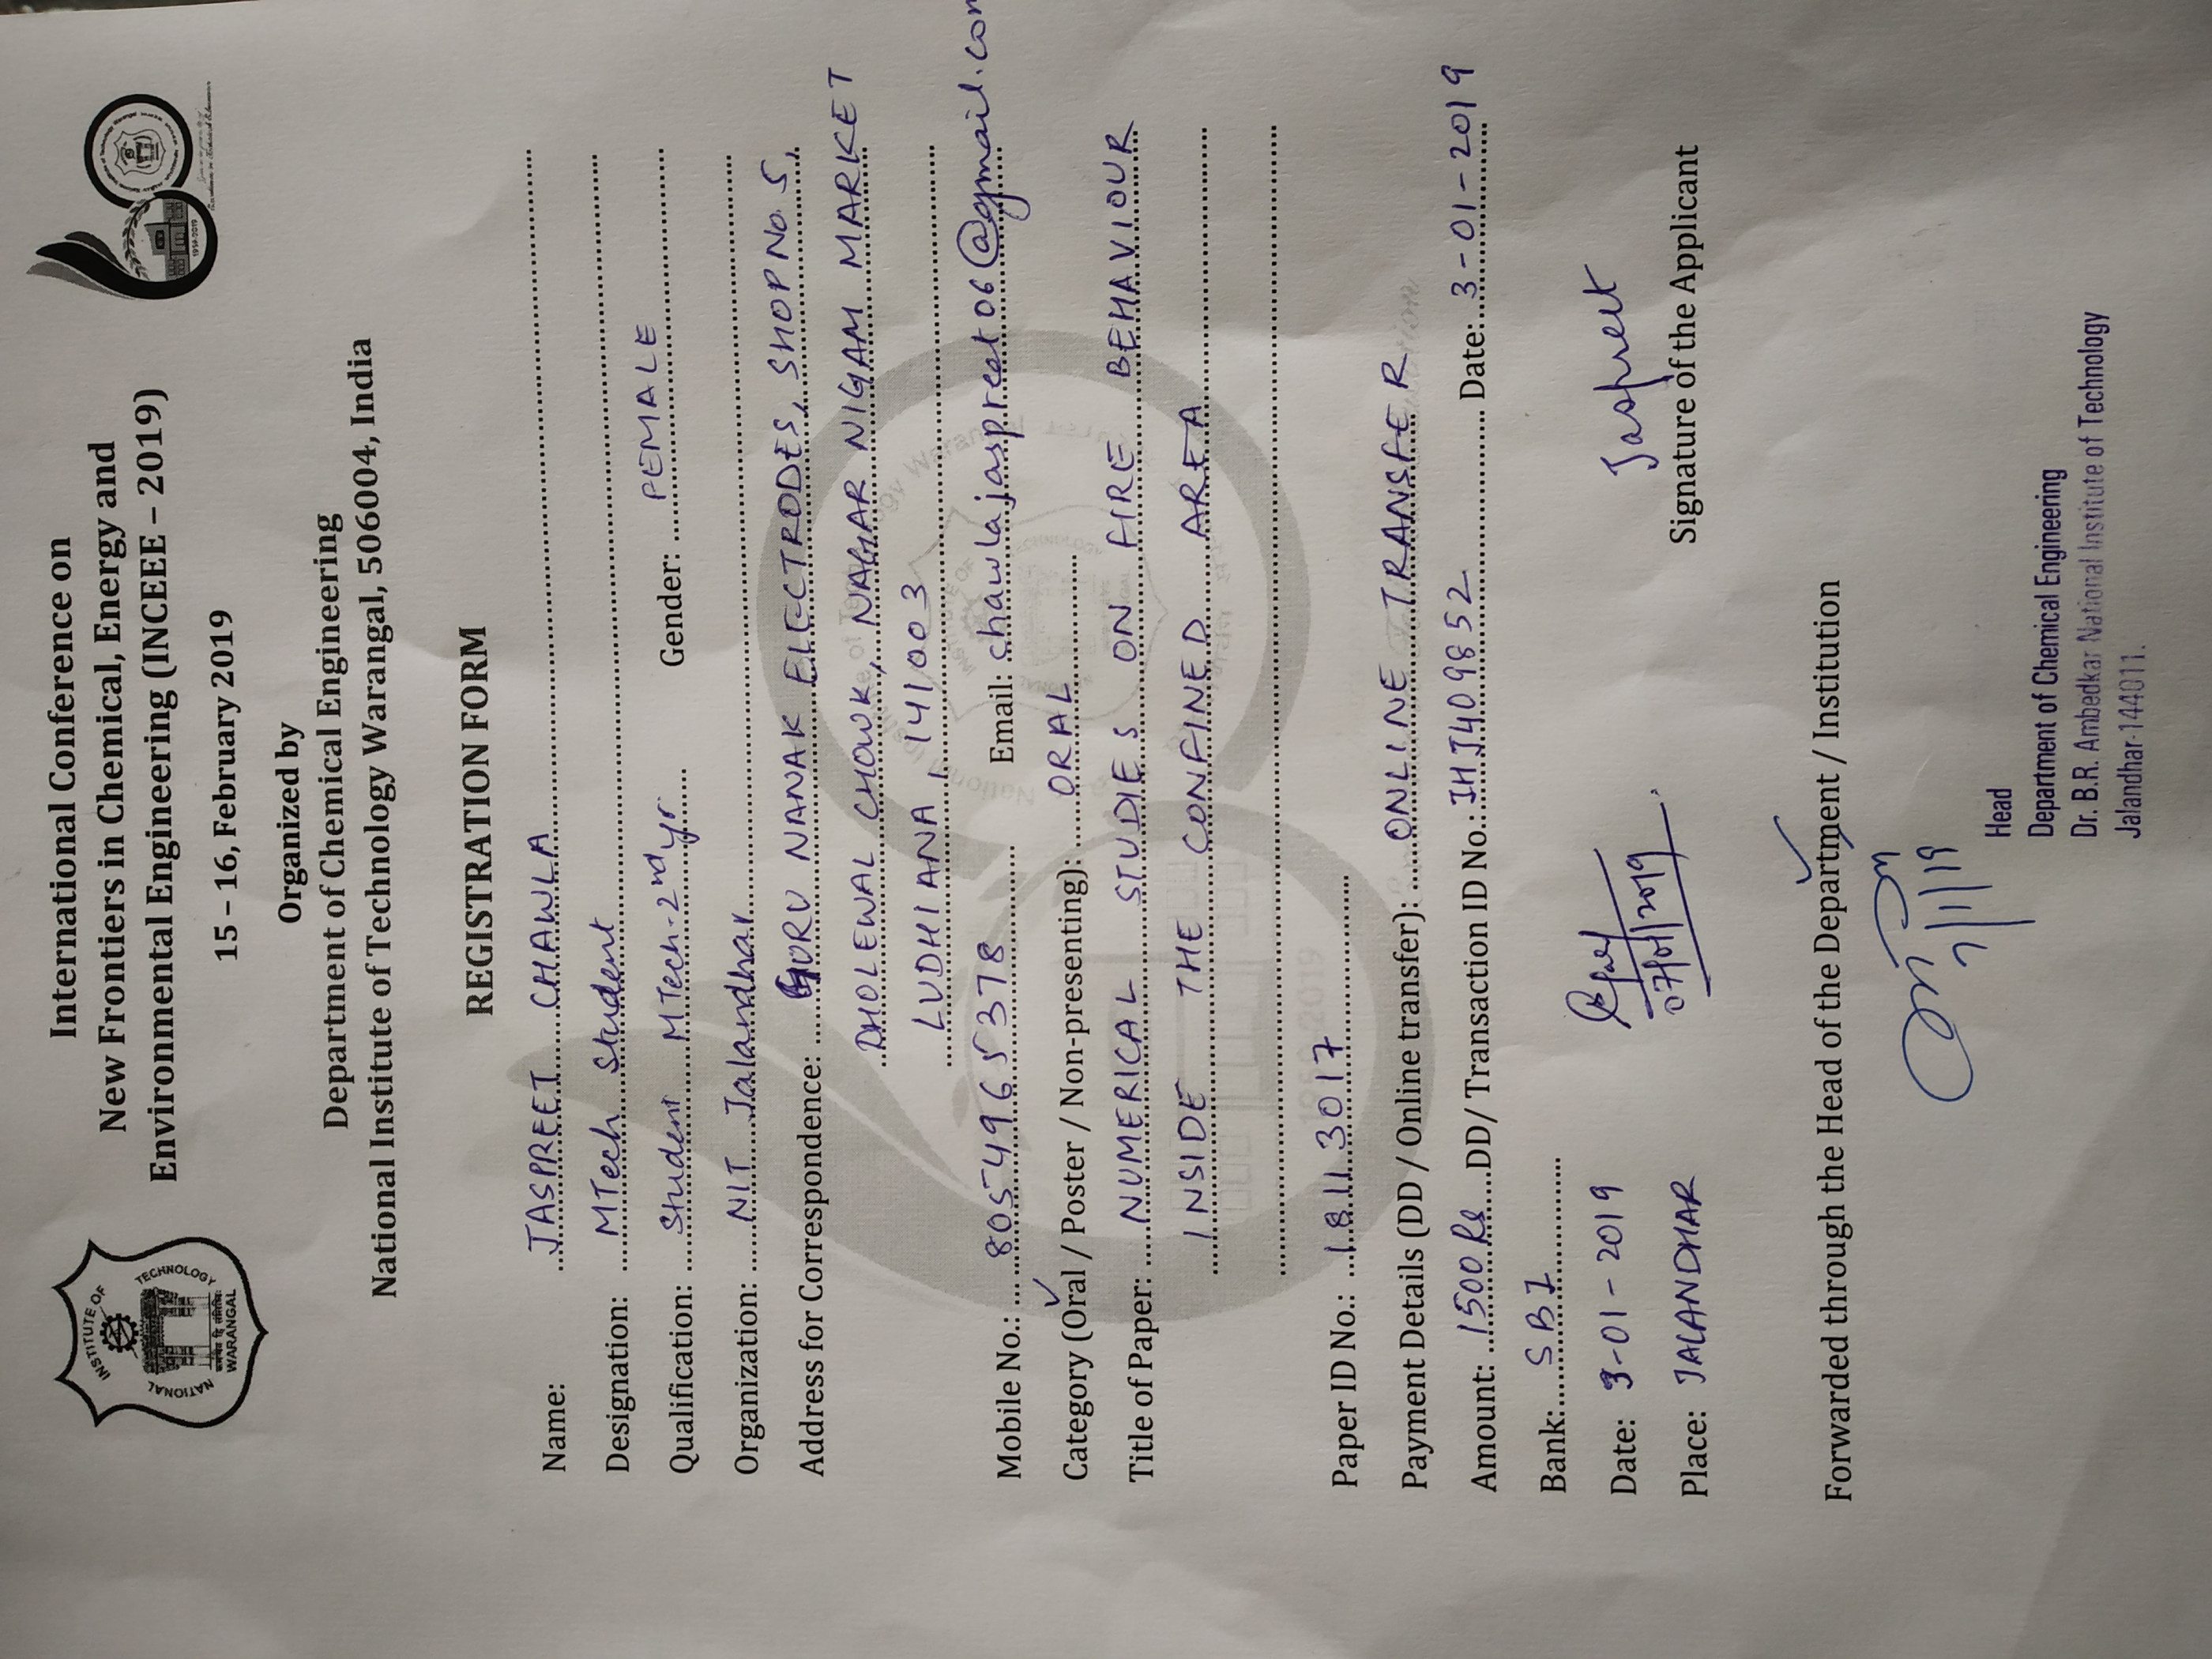 International Conference on
New Frontiers in Chemical, Energy and
Environmental Engineering (INCEEE – 2019)
15 – 16, February 2019
Organized by
Department of Chemical Engineering
National Institute of Technology Warangal, 506004, India
NATIONAL INSTITUTE OF TECHNOLOGY
WARANGAL
1959-2019
REGISTRATION FORM
Name: JASPREET CHAWLA
Designation: MTech Student
Qualification: Student MTech-2nd yr. Gender: FEMALE
Organization: NIT Jalandhar
Address for Correspondence: GURU NANAK ELECTRODES, SHOP No. 5,
DHOLEWAL CHOWK, NAGAR NIGAM MARKET
LUDHIANA, 141003
Mobile No.: 8054965378 Email: chawlajaspreet06@gmail.com
Category (Oral / Poster / Non-presenting): ORAL
Title of Paper: NUMERICAL STUDIES ON FIRE BEHAVIOUR
INSIDE THE CONFINED AREA
Paper ID No.: 18113017
Payment Details (DD / Online transfer): ONLINE TRANSFER
Amount: 1500 Rs DD/ Transaction ID No.: IHJ409852 Date: 3-01-2019
Bank: SBI
Date: 3-01-2019
Place: JALANDHAR
Jaspreet
Signature of the Applicant
Forwarded through the Head of the Department / Institution
7/1/19
Head
Department of Chemical Engineering
Dr. B.R. Ambedkar National Institute of Technology
Jalandhar-144011.